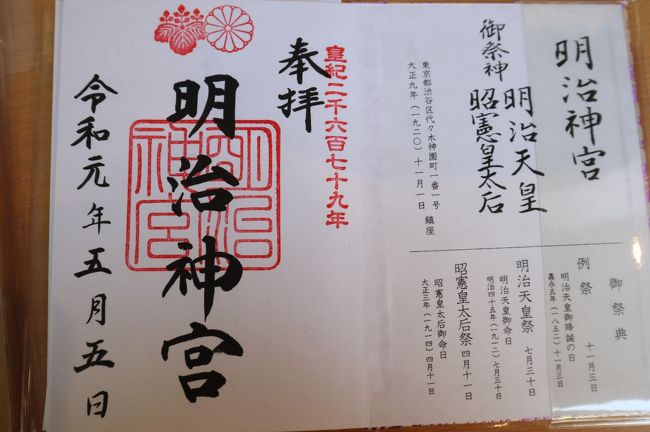 明治神宮
御祭神
明治天皇
昭憲皇太后
東京都渋谷区代々木神園町一番一号
大正九年（一九二〇）十一月一日 鎮座
御祭典
例祭 十一月三日
明治天皇御降誕の日
嘉永五年（一八五二）十一月三日
明治天皇祭 七月三十日
明治天皇御命日
明治四十五年（一九一二）七月三十日
昭憲皇太后祭 四月十一日
昭憲皇太后御命日
大正三年（一九一四）四月十一日
皇紀二千六百七十九年
奉拝
明治神宮
明治
神宮
令和元年五月五日